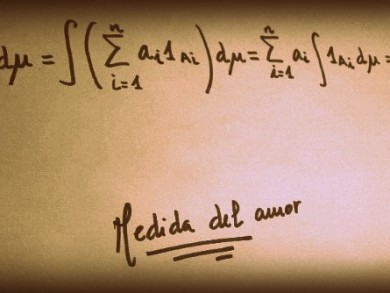 dμ = ∫ ( ∑_{i=1}^{n} a_i 1_{A_i} ) dμ = ∑_{i=1}^{n} a_i ∫ 1_{A_i} dμ =
Medida del amor